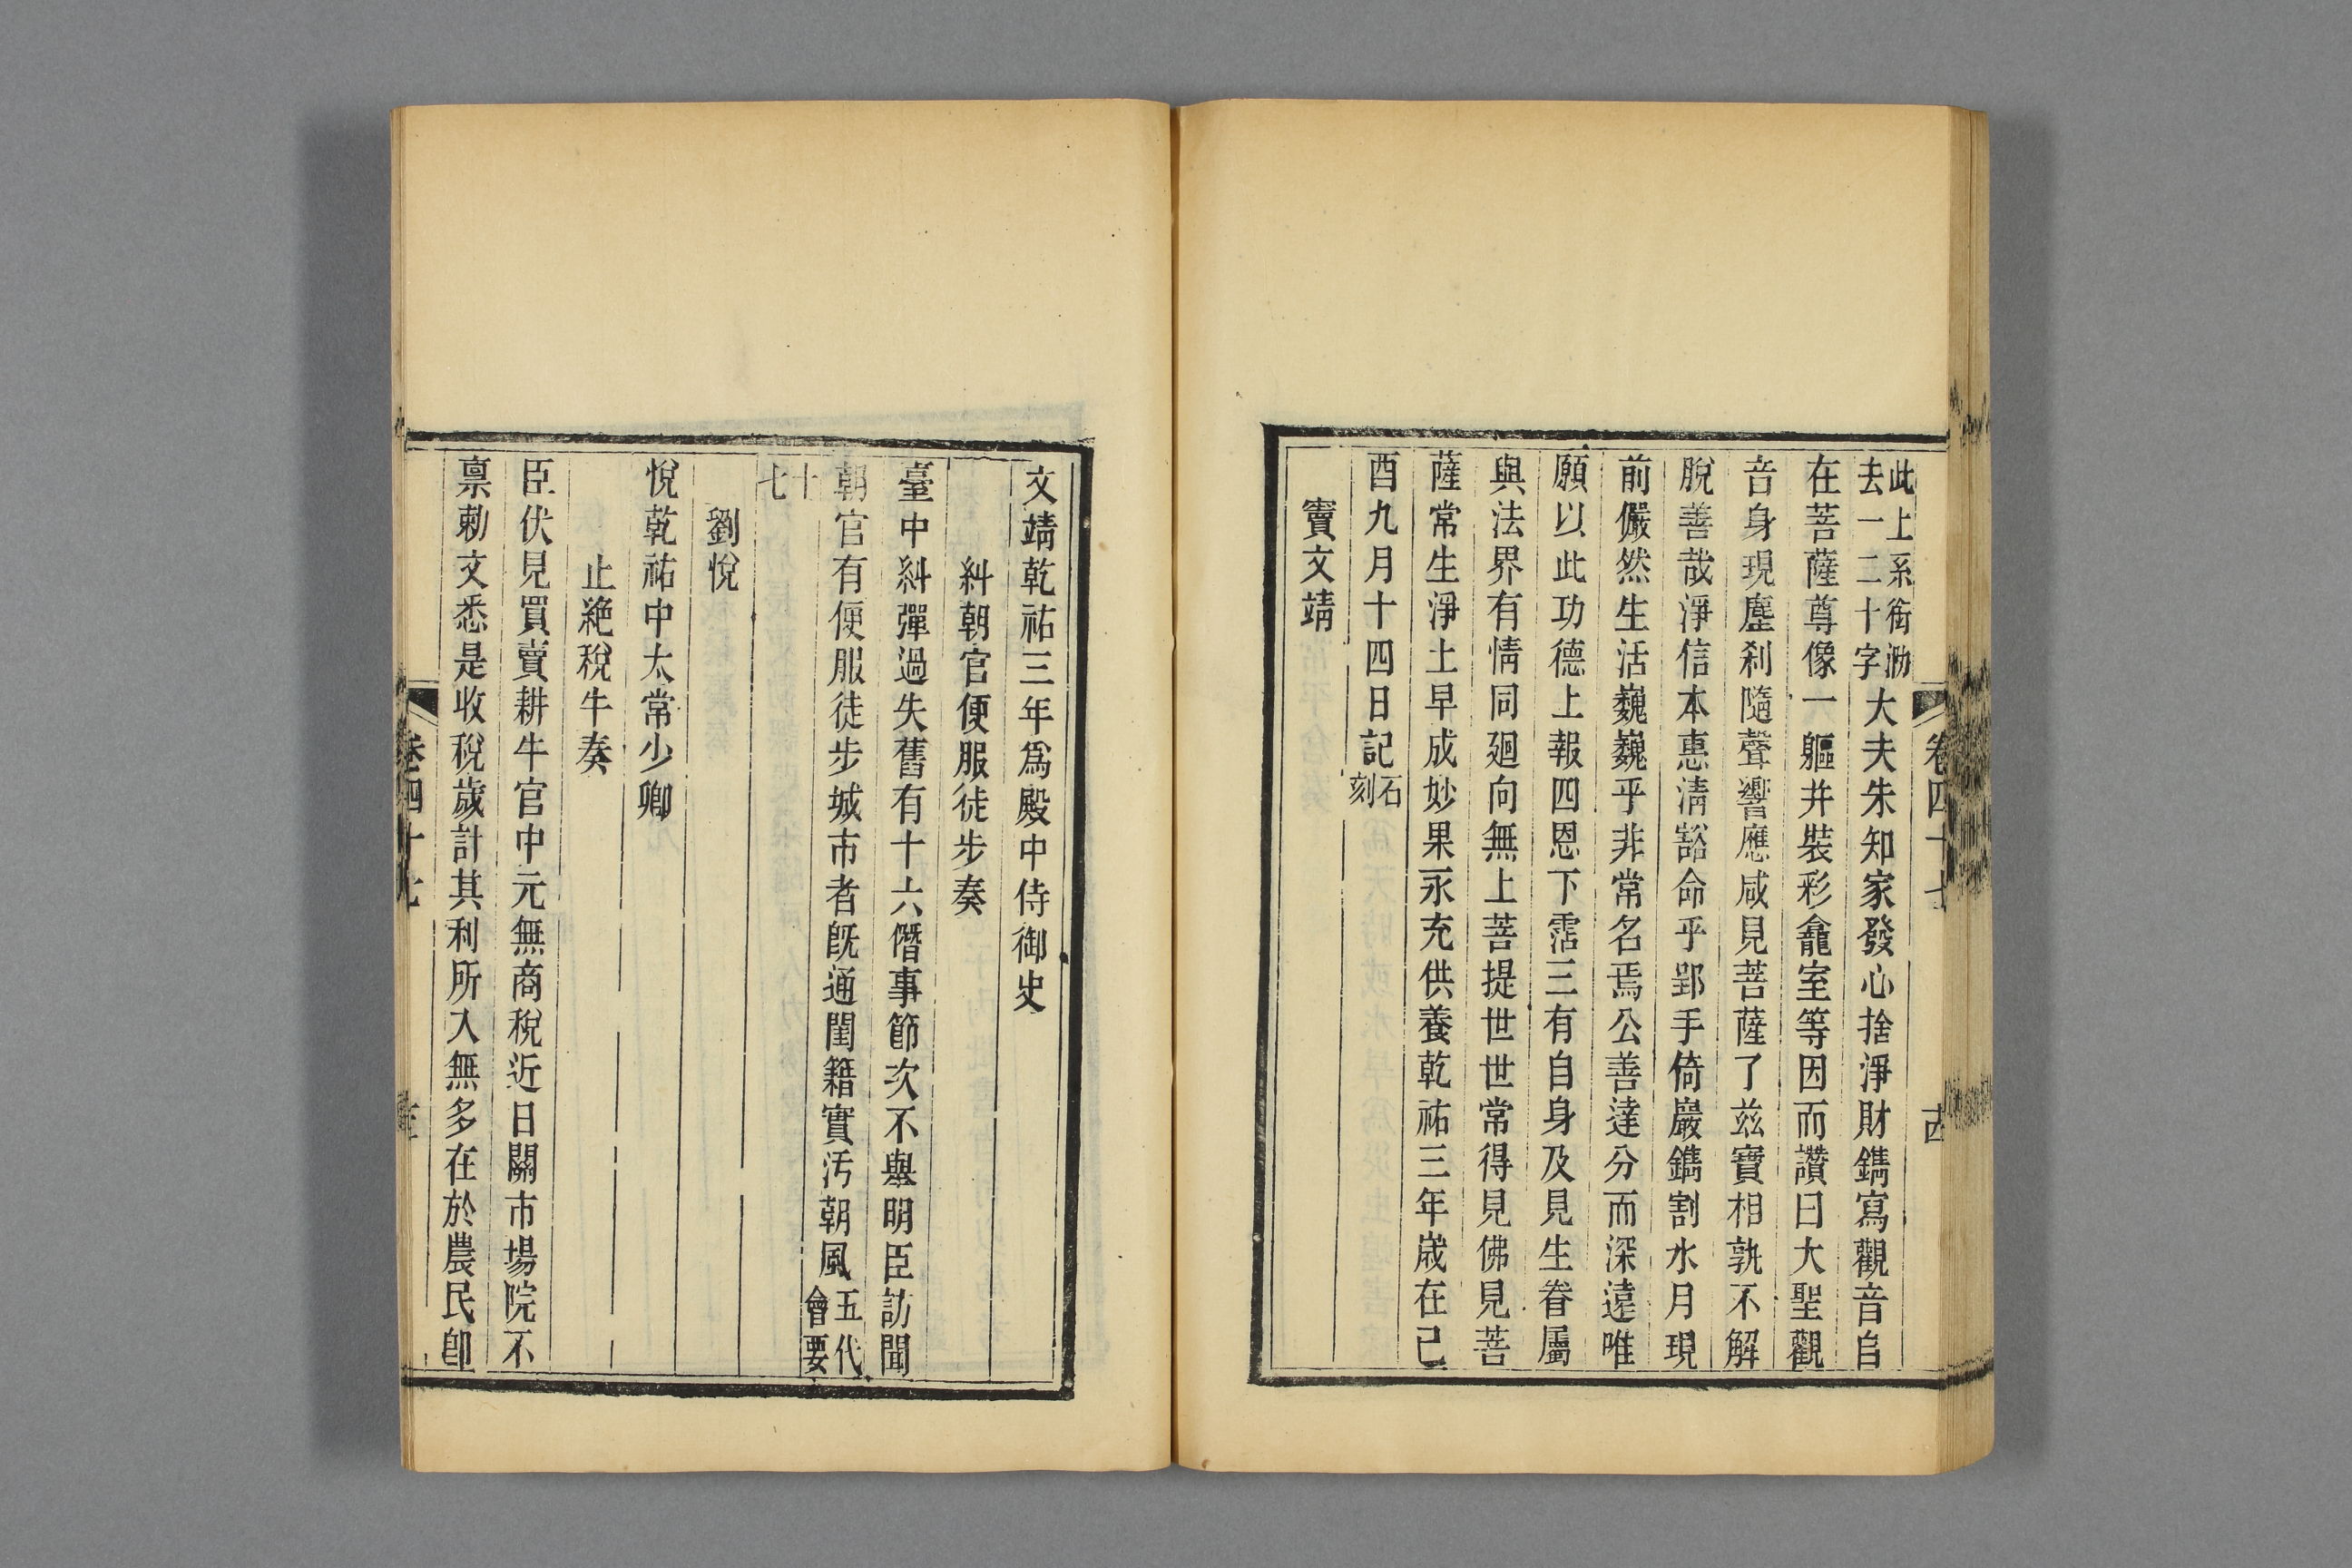 此上系銜泐
去一二十字
大夫朱知家發心捨淨財鐫寫觀音自
在菩薩尊像一軀并裝彩龕室等因而讚曰大聖觀
音身現塵刹隨聲響應咸見菩薩了茲寶相孰不解
脫善哉淨信本惠清豁命乎郢手倚巖鐫割水月現
前儼然生活巍巍乎非常名焉公善達分而深遠唯
願以此功德上報四恩下霑三有自身及見生眷屬
與法界有情同廻向無上菩提世世常得見佛見菩
薩常生淨土早成妙果永充供養乾祐三年歲在己
酉九月十四日記石刻
竇文靖
文靖乾祐三年爲殿中侍御史
糾朝官便服徒步奏
臺中糾彈過失舊有十六僭事節次不舉明臣訪聞
朝官有便服徒步城市者旣通閨籍實汚朝風五代會要
十七
劉悅
悅乾祐中太常少卿
止絶稅牛奏
臣伏見買賣耕牛官中元無商稅近日關市場院不
稟勅文悉是收稅歲計其利所入無多在於農民卽
卷四十七